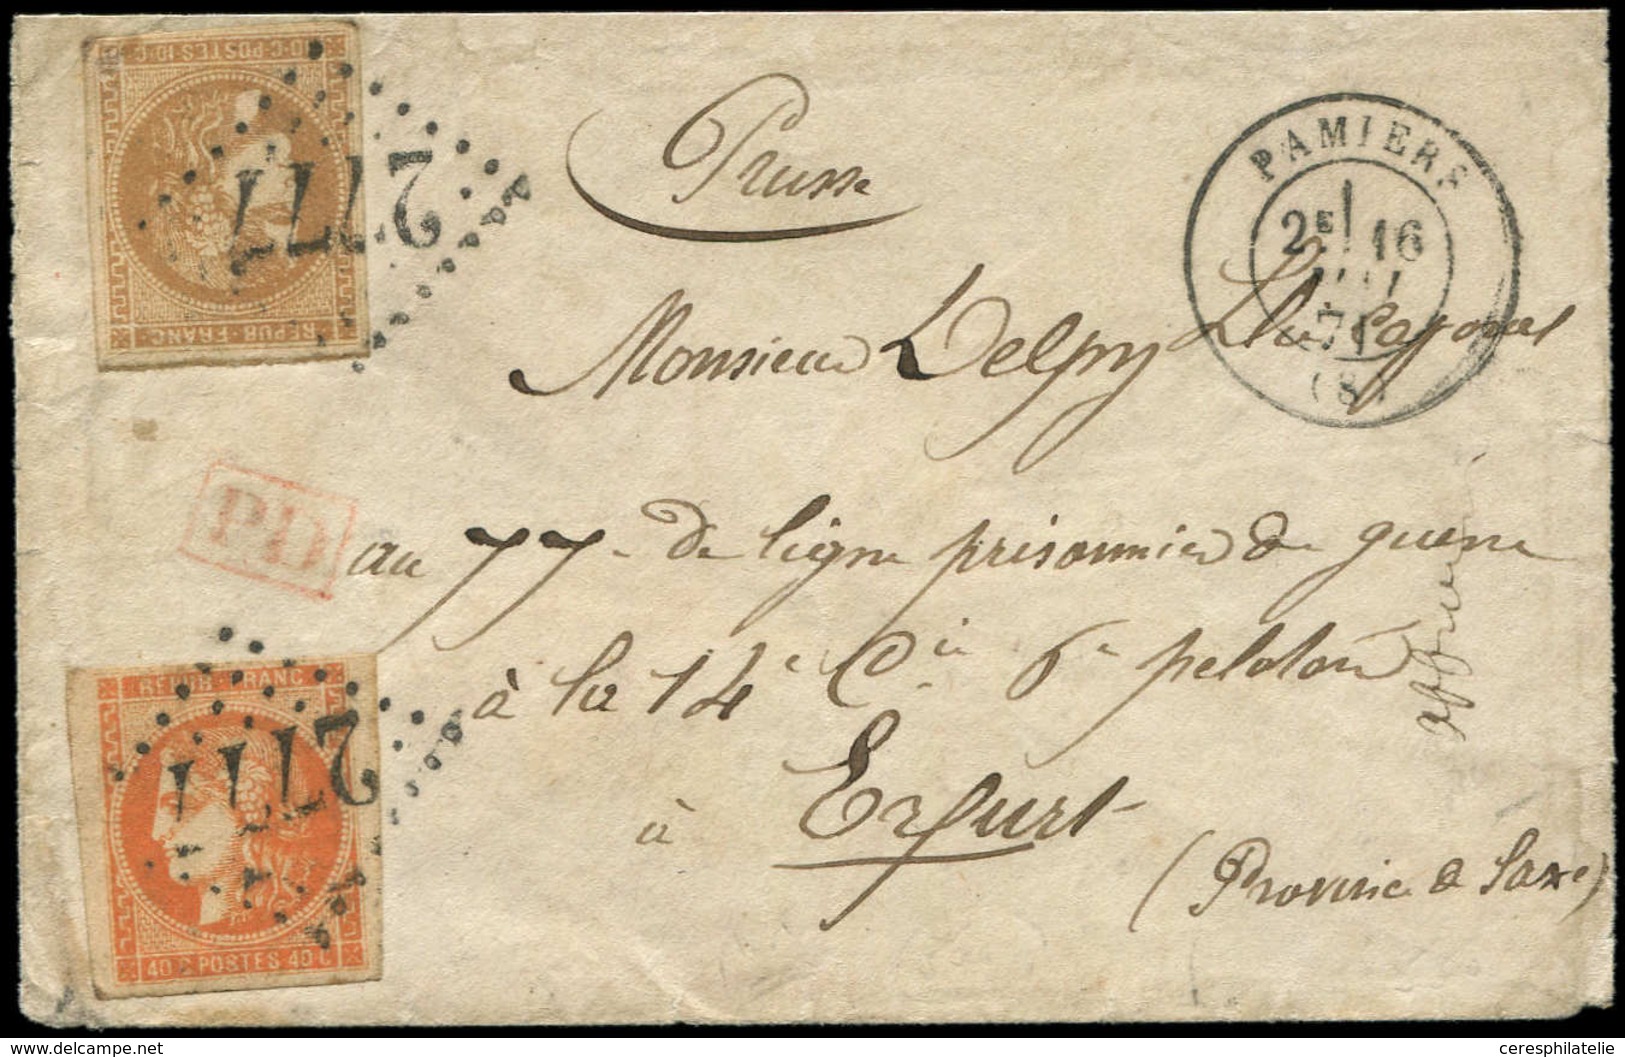 10·C·POSTES 10·C
REPUB·FRANC·
2777
Prusse
PAMIERS
2E 16
71
(8)
Monsieur Delpy
PD
au 77e de ligne prisonnier de guerre
à la 14e Cie 6e peloton
à Erfurt
(Province de Saxe)
REPUB·FRANC·
2777
40 C POSTES 40 C
ceresphilatelie